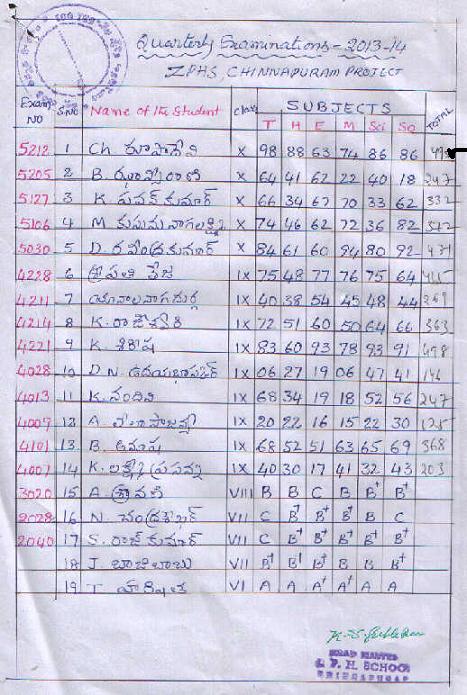 Quarterly Examinations - 2013-14
ZPHS, CHINNAPURAM PROJECT
Exam NO S.NO Name of the Student class SUBJECTS TOTAL
T H E M Sci So
5212 1 Ch. X 98 88 63 74 86 86
5205 2 B. X 64 41 62 22 40 18 247
5127 3 K. పవన్ కుమార్ X 66 34 67 70 33 62 332
5106 4 M. కుసుమ నాగలక్ష్మి X 74 46 62 72 36 82
5030 5 D. రవీంద్రకుమార్ X 84 61 60 94 80 92
4228 6 IX 75 48 77 76 75 64
4211 7 IX 40 38 54 45 48 44 269
4214 8 K. రాజేశ్వరి IX 72 51 60 50 64 66 363
4221 9 K. శిరీష IX 83 60 93 78 93 91 498
4028 10 D.N. ఉదయభాస్కర్ IX 06 27 19 06 47 41 146
4013 11 K. నందిని IX 68 34 19 18 52 56 247
4009 12 A. IX 20 22 16 15 22 30 125
4101 13 B. అనూష IX 68 52 51 63 65 69 368
4007 14 K. లక్ష్మీ ప్రసన్న IX 40 30 17 41 32 43 203
3020 15 A. శ్రావణి VIII B B C B B+ B+
2028 16 N. చంద్రశేఖర్ VII C B+ B+ B+ B C
2040 17 S. రాజ్ కుమార్ VII C B+ B+ B+ B+ B+
18 J. బాజిబాబు VII B+ B+ B+ B B+ B+
19 T. హారిత VI A A A+ A+ A A
HEAD MASTER
Z. P. H. SCHOOL